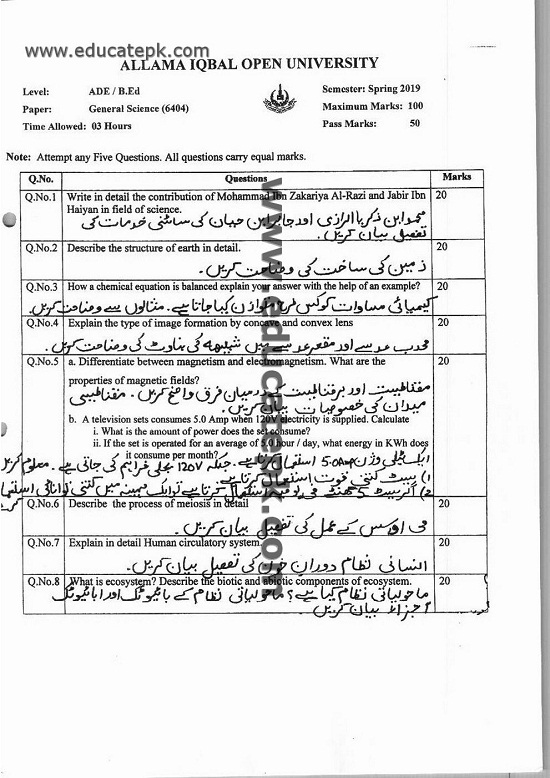 www.educatepk.com
ALLAMA IQBAL OPEN UNIVERSITY
Level: ADE / B.Ed
Semester: Spring 2019
Paper: General Science (6404)
Maximum Marks: 100
Time Allowed: 03 Hours
Pass Marks: 50
Note: Attempt any Five Questions. All questions carry equal marks.
Q.No. Questions Marks
Q.No.1 Write in detail the contribution of Mohammad Ibn Zakariya Al-Razi and Jabir Ibn 20
Haiyan in field of science.
محمد ابن ذکریا الرازی اور جابر ابن حیان کی سائنسی خدمات کی
تفصیل بیان کریں۔
Q.No.2 Describe the structure of earth in detail. 20
زمین کی ساخت کی وضاحت کریں۔
Q.No.3 How a chemical equation is balanced explain your answer with the help of an example? 20
کیمیائی مساوات کو کس طرح متوازن کیا جاتا ہے۔ مثالوں سے وضاحت کریں۔
Q.No.4 Explain the type of image formation by concave and convex lens 20
محدب عدسے اور مقعر عدسے میں شبیہہ کی بناوٹ کی وضاحت کریں۔
Q.No.5 a. Differentiate between magnetism and electromagnetism. What are the 20
properties of magnetic fields?
مقناطیسیت اور برقناطیسیت کے درمیان فرق واضح کریں۔ مقناطیسی
میدان کی خصوصیات بیان کریں۔
b. A television sets consumes 5.0 Amp when 120V electricity is supplied. Calculate
i. What is the amount of power does the set consume?
ii. If the set is operated for an average of 5.0 hour / day, what energy in KWh does
it consume per month?
ایک ٹیلی وژن 5.0Amp استعمال کرتا ہے۔ جبکہ 120V بجلی فراہم کی جاتی ہے۔ معلوم کریں
1) سیٹ کتنی قوت استعمال کرتا ہے۔
2) اگر سیٹ 5 گھنٹے فی یومیہ استعمال کرتا ہے تو ایک مہینہ میں کتنی توانائی استعمال
کرے
Q.No.6 Describe the process of meiosis in detail 20
می اوسس کے عمل کی تفصیل بیان کریں۔
Q.No.7 Explain in detail Human circulatory system. 20
انسانی نظام دوران خون کی تفصیل بیان کریں۔
Q.No.8 What is ecosystem? Describe the biotic and abiotic components of ecosystem. 20
ماحولیاتی نظام کیا ہے؟ ماحولیاتی نظام کے بائیوٹک اور ابائیوٹک
اجزاء بیان کریں۔
www.educatepk.com